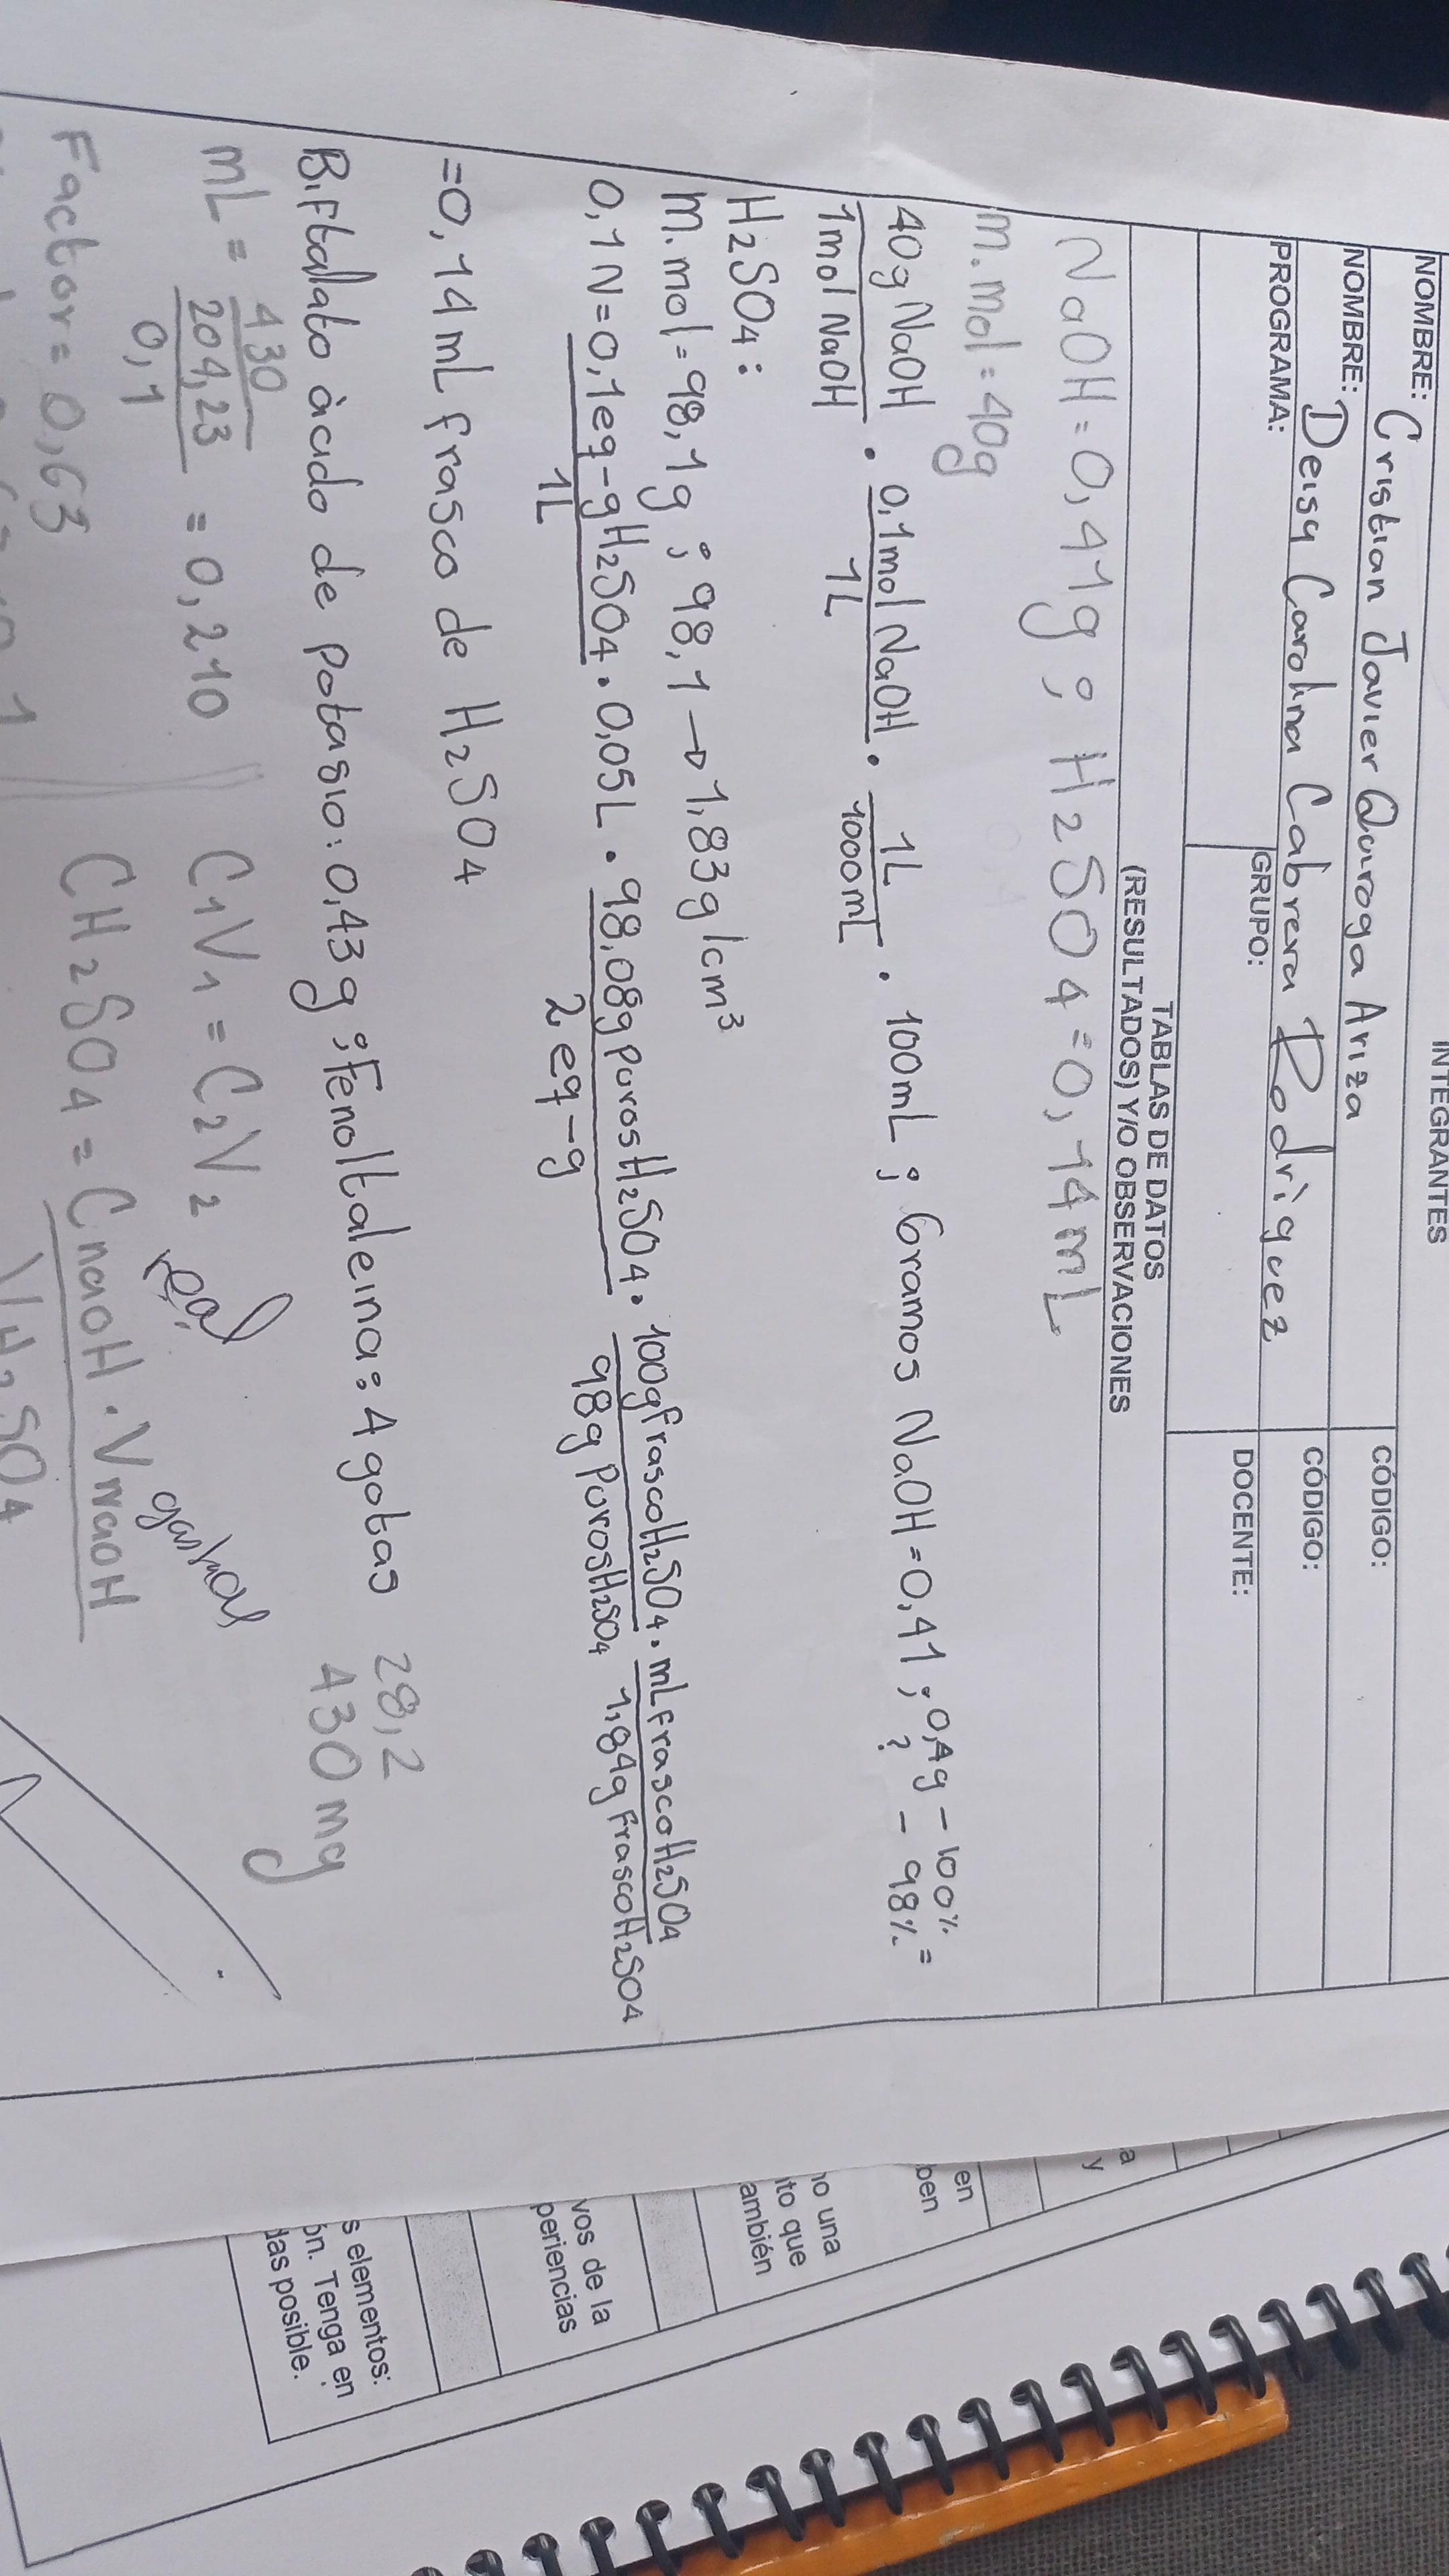 INTEGRANTES
NOMBRE: Cristian Javier Quiroga Ariza
CÓDIGO:
NOMBRE: Deisy Carolina Cabrera Rodriguez
CÓDIGO:
PROGRAMA:
GRUPO:
DOCENTE:
TABLAS DE DATOS
(RESULTADOS) Y/O OBSERVACIONES
NaOH = 0,41g ; H2SO4 = 0,14mL
m.mol = 40g
40g NaOH / 1mol NaOH . 0,1mol NaOH / 1L . 1L / 1000mL . 100mL ; Gramos NaOH = 0,41 ; 0,4g - 100% =
? - 98%
H2SO4 :
m.mol = 98,1g ; 98,1 → 1,83g/cm³
0,1N = 0,1eq-g H2SO4 / 1L . 0,05L . 98,08g Puros H2SO4 / 2 eq-g . 100g frasco H2SO4 / 98g Puros H2SO4 . mL frasco H2SO4 / 1,84g Frasco H2SO4
= 0,14mL frasco de H2SO4
Biftalato àcido de potasio: 0,43g ; Fenolftaleina: 4 gotas
28,2
430mg
mL = 430 / 204,23 / 0,1 = 0,210
C1V1 = C2V2
real
gastados
Factor = 0,63
CH2SO4 = CnaOH . VnaOH
VH2SO4
a
y
en
ben
no una
ito que
ambién
vos de la
periencias
s elementos:
ón. Tenga en
das posible.